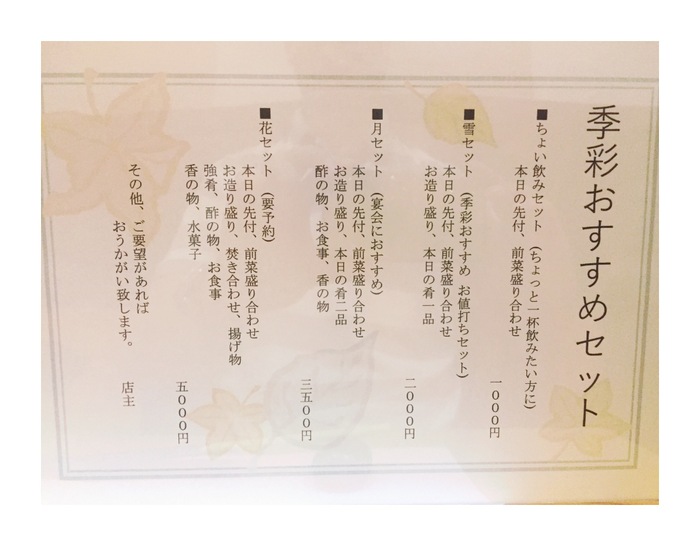 季彩おすすめセット
■ちょい飲みセット（ちょっと一杯飲みたい方に）
本日の先付、前菜盛り合わせ
一〇〇〇円
■雪セット（季彩おすすめ　お値打ちセット）
本日の先付、前菜盛り合わせ
お造り盛り、本日の肴一品
二〇〇〇円
■月セット（宴会におすすめ）
本日の先付、前菜盛り合わせ
お造り盛り、本日の肴二品
酢の物、お食事、香の物
三五〇〇円
■花セット（要予約）
本日の先付、前菜盛り合わせ
お造り盛り、焚き合わせ、揚げ物
強肴、酢の物、お食事
香の物、水菓子
五〇〇〇円
その他、ご要望があれば
おうかがい致します。
店主